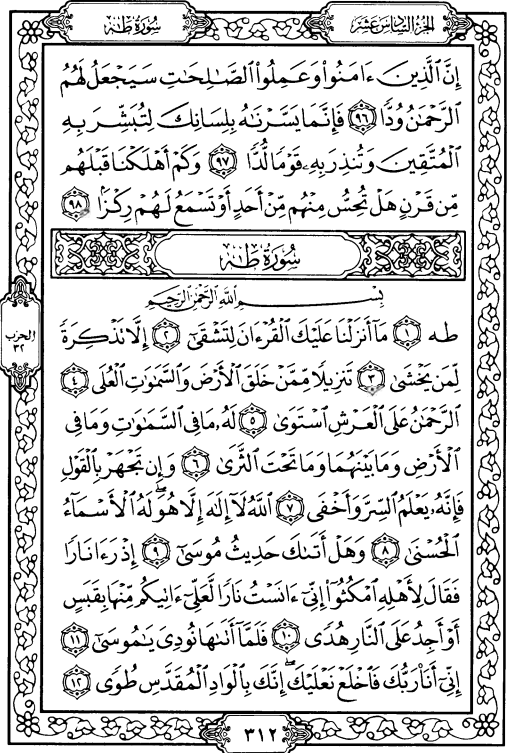 سُورَةُ طه
الجُزْءُ السَّادِسَ عَشَرَ
إِنَّ الَّذِينَ ءَامَنُوا۟ وَعَمِلُوا۟ الصَّـٰلِحَـٰتِ سَيَجْعَلُ لَهُمُ
الرَّحْمَـٰنُ وُدًّا ٩٦ فَإِنَّمَا يَسَّرْنَـٰهُ بِلِسَانِكَ لِتُبَشِّرَ بِهِ
الْمُتَّقِينَ وَتُنذِرَ بِهِۦ قَوْمًا لُّدًّا ٩٧ وَكَمْ أَهْلَكْنَا قَبْلَهُم
مِّن قَرْنٍ هَلْ تُحِسُّ مِنْهُم مِّنْ أَحَدٍ أَوْ تَسْمَعُ لَهُمْ رِكْزًۢا ٩٨
سُورَةُ طه
بِسْمِ اللَّهِ الرَّحْمَـٰنِ الرَّحِيمِ
طه ١ مَآ أَنزَلْنَا عَلَيْكَ الْقُرْءَانَ لِتَشْقَىٰٓ ٢ إِلَّا تَذْكِرَةً
لِّمَن يَخْشَىٰ ٣ تَنزِيلًا مِّمَّنْ خَلَقَ الْأَرْضَ وَالسَّمَـٰوَٰتِ الْعُلَى ٤
الرَّحْمَـٰنُ عَلَى الْعَرْشِ اسْتَوَىٰ ٥ لَهُۥ مَا فِى السَّمَـٰوَٰتِ وَمَا فِى
الْأَرْضِ وَمَا بَيْنَهُمَا وَمَا تَحْتَ الثَّرَىٰ ٦ وَإِن تَجْهَرْ بِالْقَوْلِ
فَإِنَّهُۥ يَعْلَمُ السِّرَّ وَأَخْفَى ٧ اللَّهُ لَآ إِلَـٰهَ إِلَّا هُوَ ۖ لَهُ الْأَسْمَآءُ
الْحُسْنَىٰ ٨ وَهَلْ أَتَىٰكَ حَدِيثُ مُوسَىٰٓ ٩ إِذْ رَءَا نَارًا
فَقَالَ لِأَهْلِهِ امْكُثُوٓا۟ إِنِّىٓ ءَانَسْتُ نَارًا لَّعَلِّىٓ ءَاتِيكُم مِّنْهَا بِقَبَسٍ
أَوْ أَجِدُ عَلَى النَّارِ هُدًى ١٠ فَلَمَّآ أَتَىٰهَا نُودِىَ يَـٰمُوسَىٰٓ ١١
إِنِّىٓ أَنَا۠ رَبُّكَ فَاخْلَعْ نَعْلَيْكَ ۖ إِنَّكَ بِالْوَادِ الْمُقَدَّسِ طُوًى ١٢
الحزب
٣٢
٣١٢